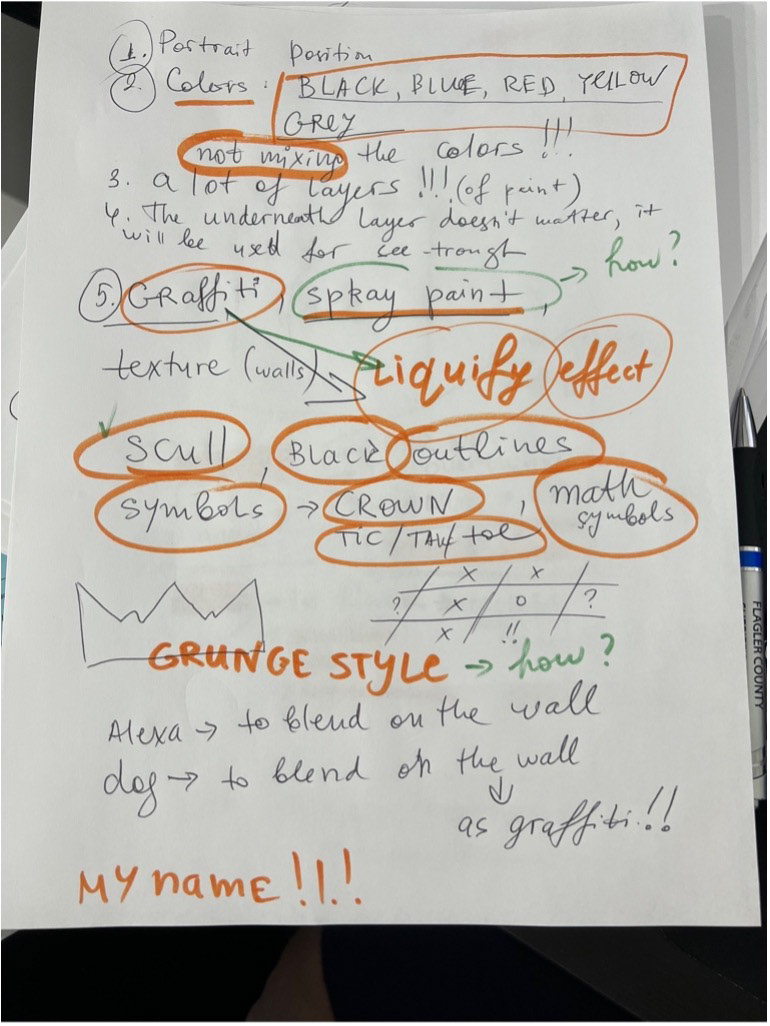 1. Portrait position
2. Colors : BLACK, BLUE, RED, YELLOW
GREY
not mixing the colors !!!
3. a lot of layers !!! (of paint)
4. The underneath layer doesn't matter, it
will be used for see-trough
→ how?
5. GRaffiti, spray paint,
texture (walls) Liquify effect
scull, Black outlines
symbols → CROWN, math
symbols
TIC/TAK/toe
x x
? x o ?
x !!
GRUNGE STYLE → how?
Alexa → to blend on the wall
dog → to blend on the wall
as graffiti!!
MY name !!!
FLAGLER COUNTY